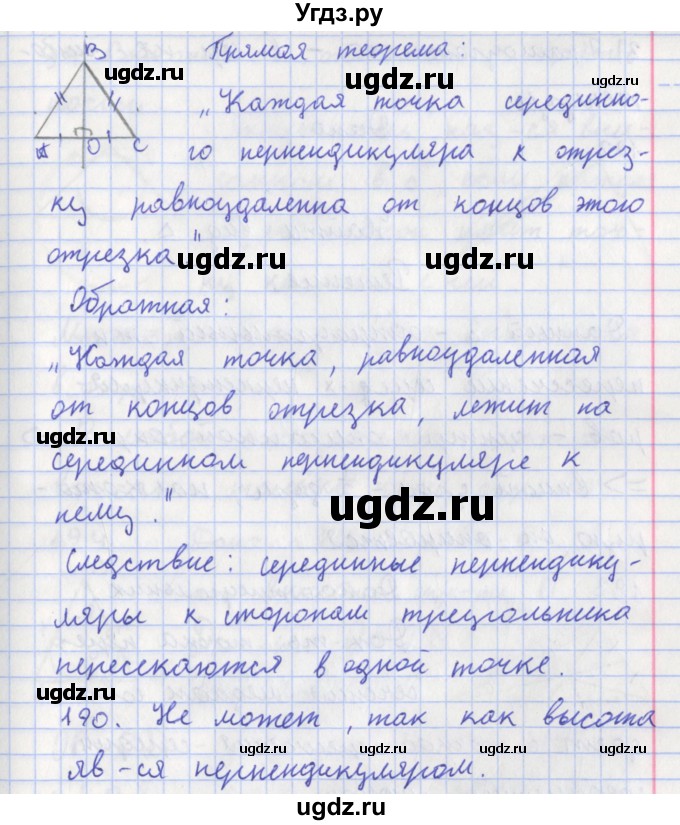 Угдз.ру
B
Прямая теорема:
ugdz.ru
ugdz.ru
„Каждая точка серединно-
O C
го перпендикуляра к отрез-
ugdz.ru
ugdz.ru
ку равноудаленна от концов этого
отрезка"
ugdz.ru
ugdz.ru
Обратная:
„Каждая точка, равноудаленная
от концов отрезка, лежит на
серединном перпендикуляре к
нему."
ugdz.ru
Следствие: серединные перпендику-
ляры к сторонам треугольника
пересекаются в одной точке.
ugdz.ru
190. Не может, так как высота
ugdz.ru
ugdz.ru
ugdz.ru
яв-ся перпендикуляром.
ugdz.ru